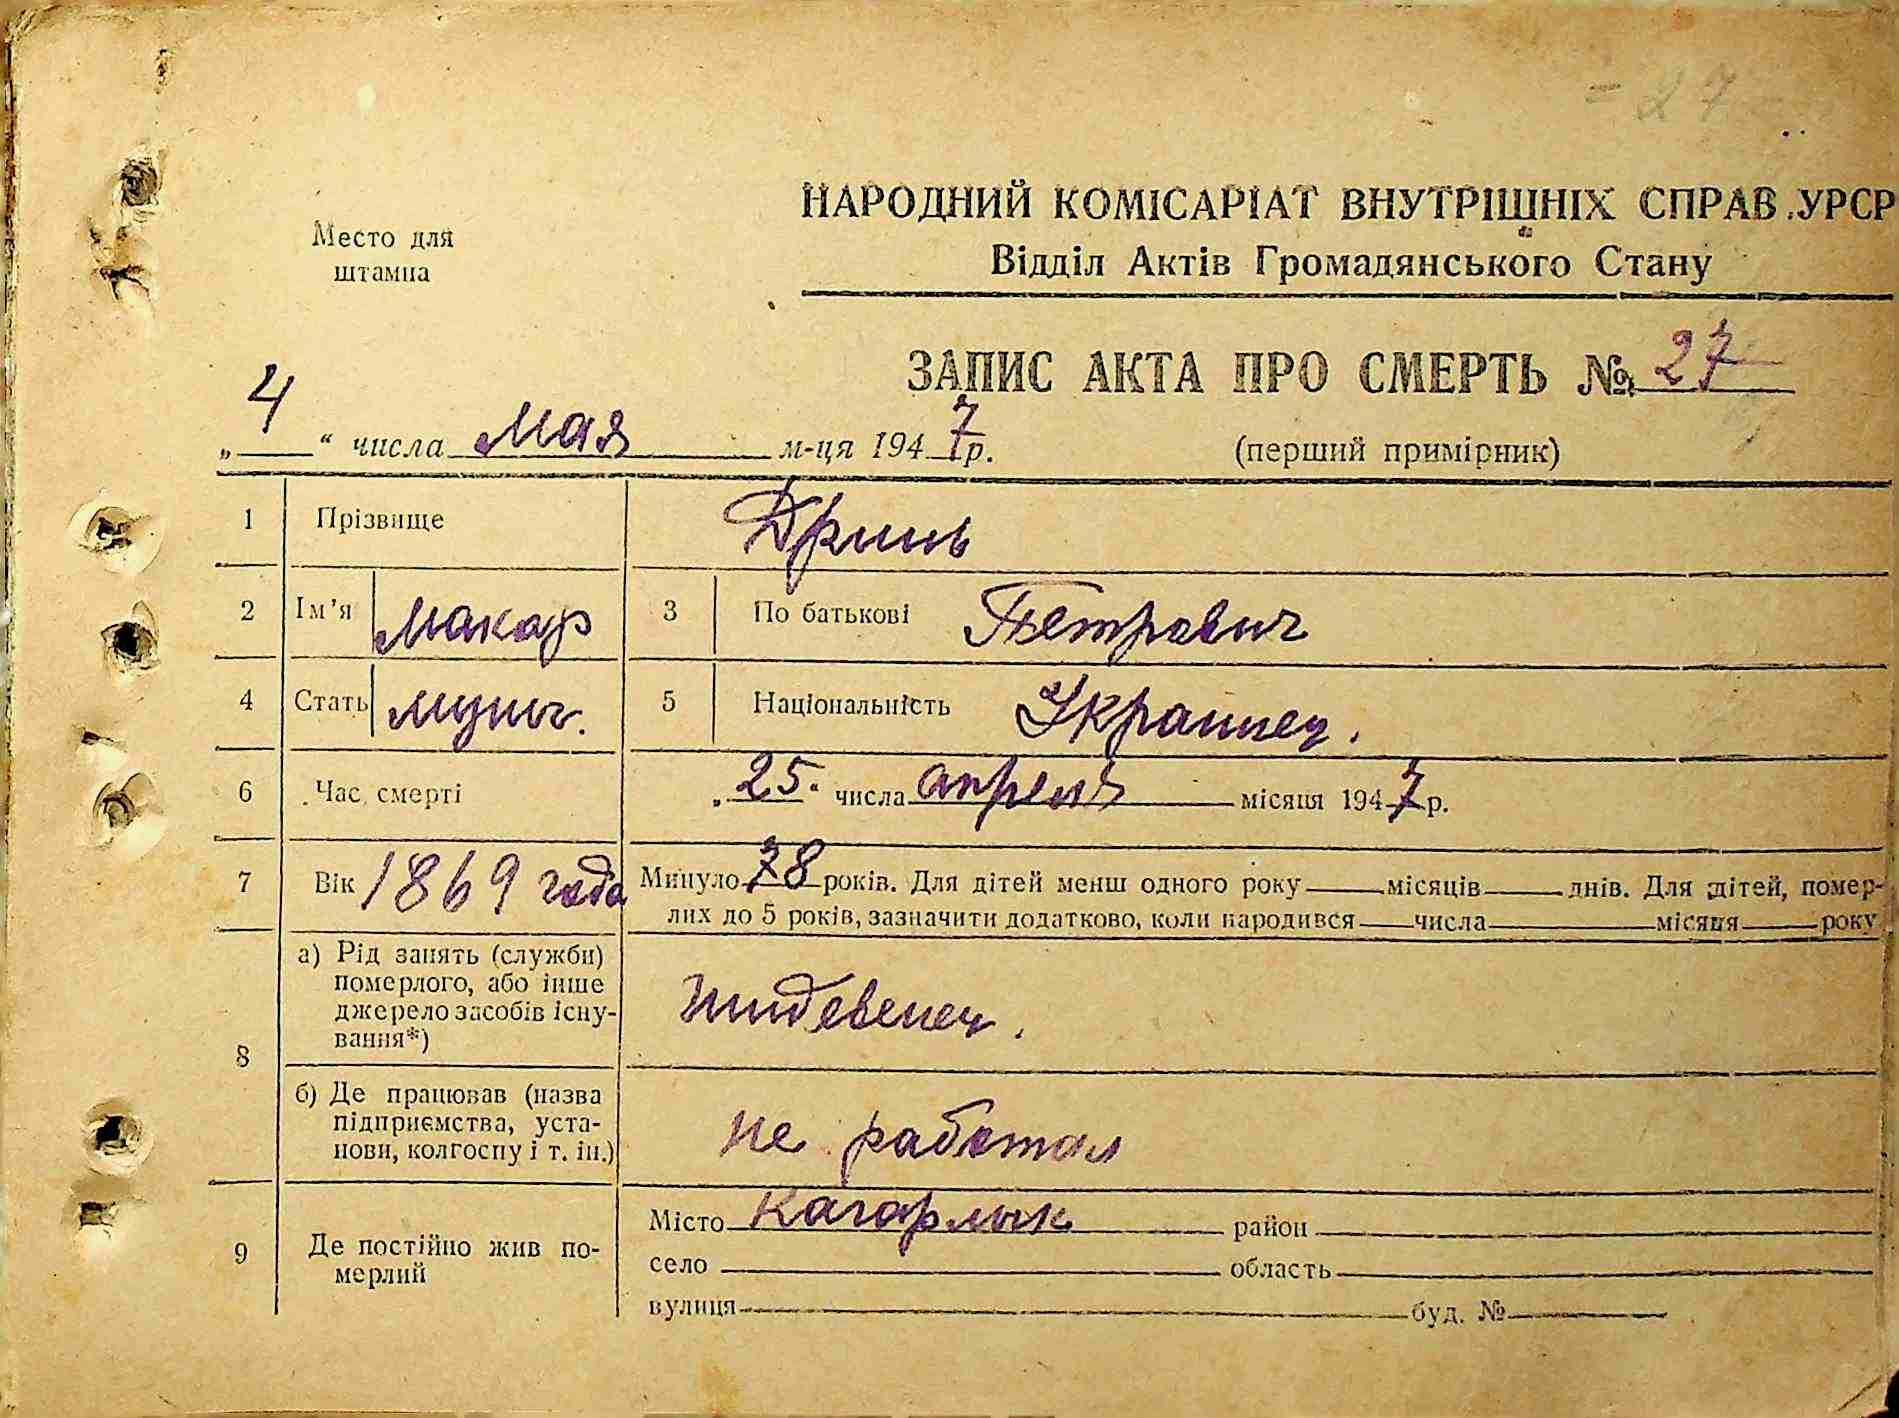 = 27
НАРОДНИЙ КОМІСАРІАТ ВНУТРІШНІХ СПРАВ УРСР
Відділ Актів Громадянського Стану
Место для
штампа
ЗАПИС АКТА ПРО СМЕРТЬ № 27
„ 4 “ числа мая м-ця 1947 р.
(перший примірник)
1 Прізвище Дринь
2 Ім'я Макар 3 По батькові Петрович
4 Стать мужч. 5 Національність Украинец.
6 Час смерті „ 25 “ числа апреля місяця 1947 р.
7 Вік 1869 года Минуло 78 років. Для дітей менш одного року місяців днів. Для дітей, помер-
лих до 5 років, зазначити додатково, коли народився числа місяця року
8 а) Рід занять (служби)
померлого, або інше
джерело засобів існу-
вання*)
иждевенец.
б) Де працював (назва
підприємства, уста-
нови, колгоспу і т. ін.)
не работал
9 Де постійно жив по-
мерлий
Місто Кагарлык район
село область
вулиця буд. №